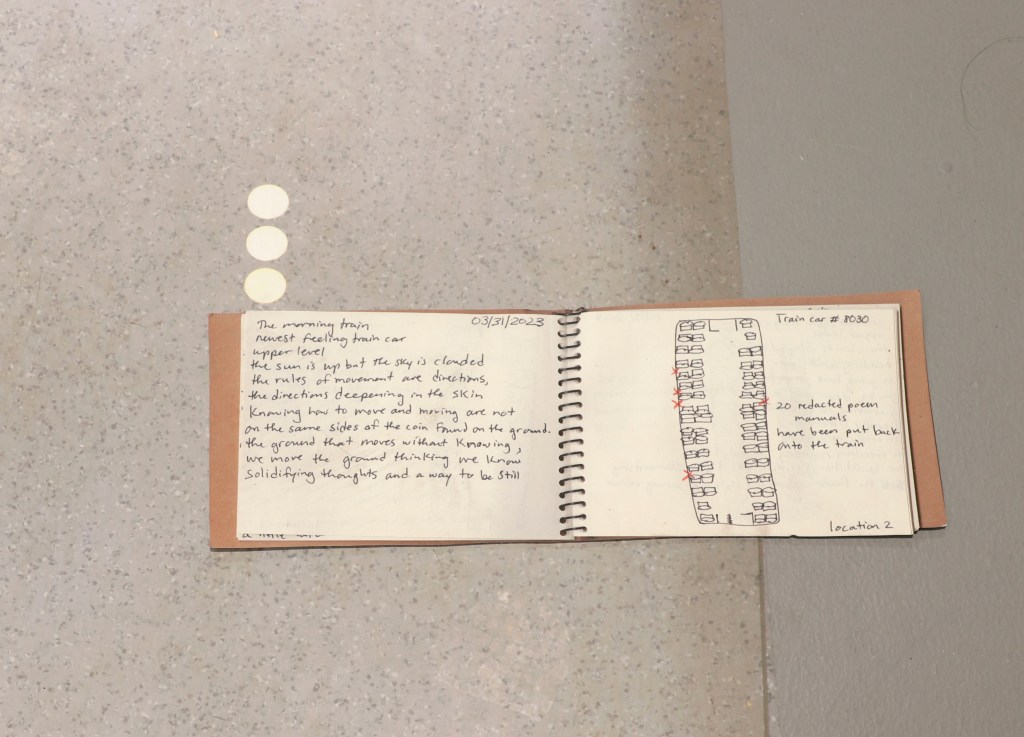 03/31/2023
The morning train
newest feeling train car
upper level
the sun is up but the sky is clouded
the rules of movement are directions,
the directions deepening in the skin
Knowing how to move and moving are not
on the same sides of the coin found on the ground.
the ground that moves without knowing,
we move the ground thinking we know
solidifying thoughts and a way to be still
Train car # 8030
20 redacted poem
manuals
have been put back
onto the train
location 2